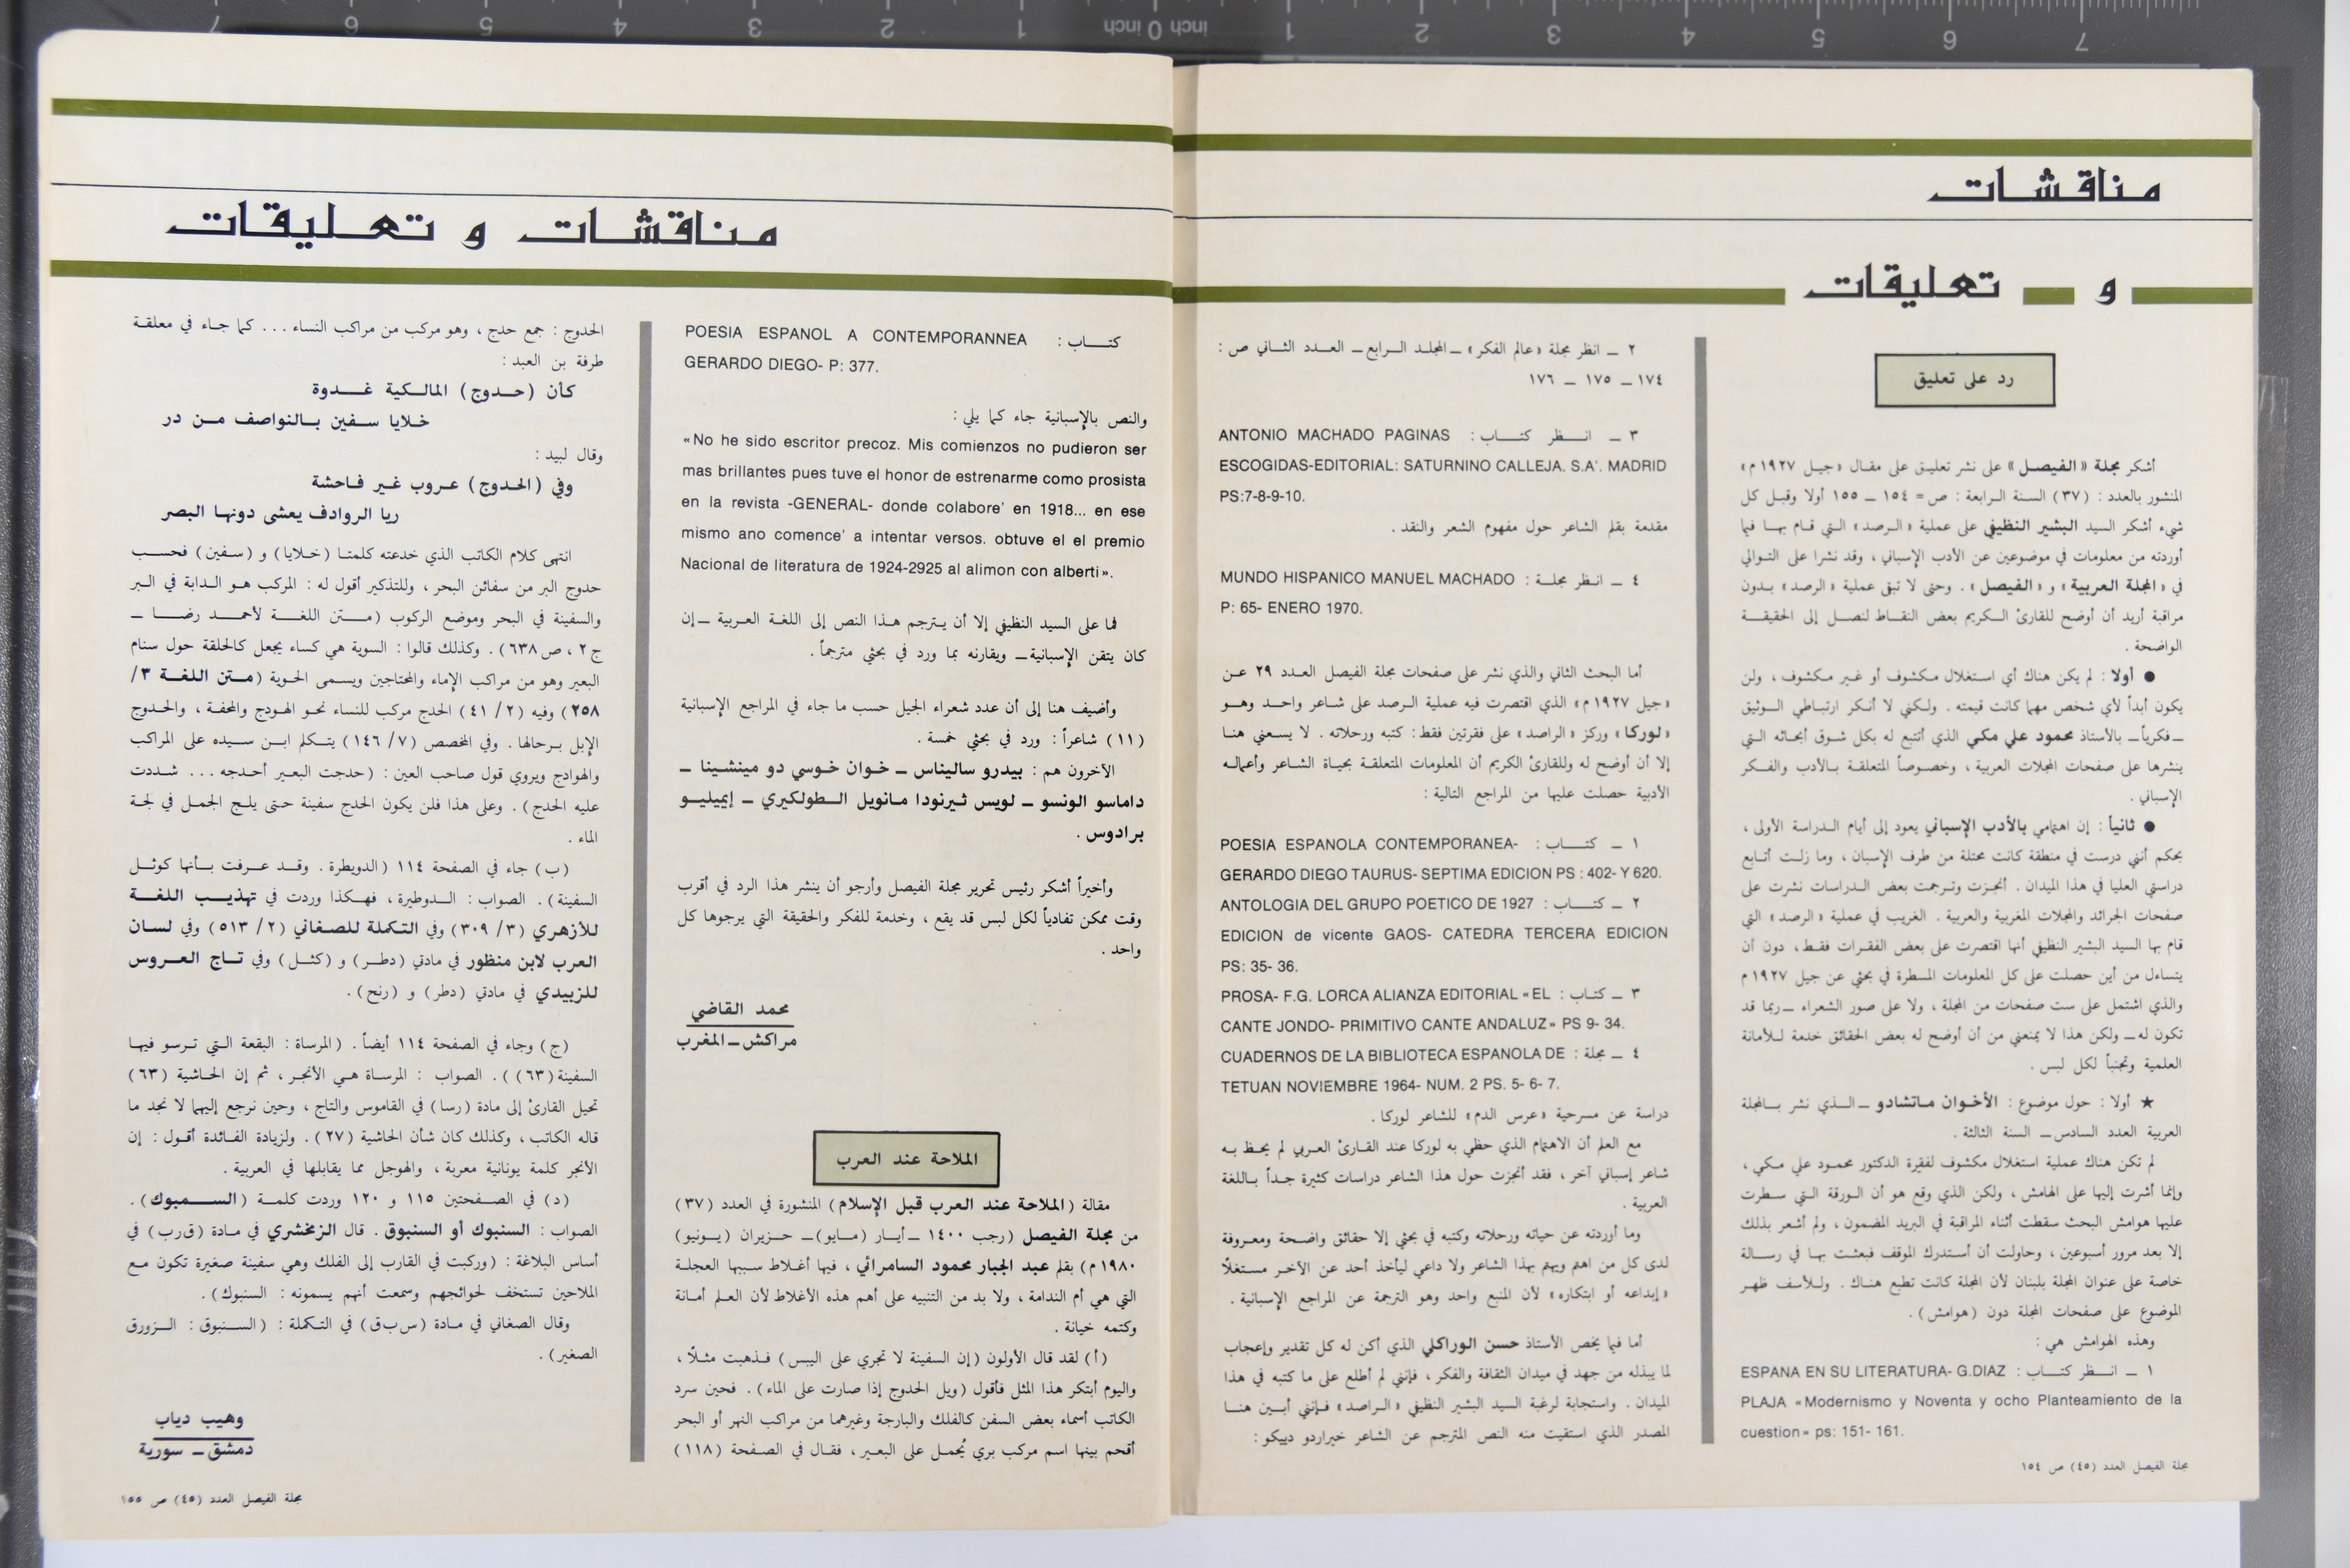 مناقشات
و تعليقات
رد على تعليق
أشكر مجلة «الفيصل» على نشر تعليق على مقال «جيل ١٩٢٧ م»
المنشور بالعدد : (٣٧) السنة الرابعة : ص = ١٥٤ ــ ١٥٥ أولا وقبل كل
شيء أشكر السيد البشير النظيفي على عملية «الرصد» التي قام بها فيما
أوردته من معلومات في موضوعين عن الأدب الإسباني ، وقد نشرا على التوالي
في «المجلة العربية» و «الفيصل» . وحتى لا تبقى عملية «الرصد» بدون
مراقبة أريد أن أوضح للقارئ الكريم بعض النقاط لنصل إلى الحقيقة
الواضحة .
● أولا : لم يكن هناك أي استغلال مكشوف أو غير مكشوف ، ولن
يكون أبداً لأي شخص مهما كانت قيمته . ولكني لا أنكر ارتباطي الوثيق
ــ فكرياً ــ بالأستاذ محمود علي مكي الذي أتتبع له بكل شوق أبحاثه التي
ينشرها على صفحات المجلات العربية ، وخصوصاً المتعلقة بالأدب والفكر
الإسباني .
● ثانياً : إن اهتمامي بالأدب الإسباني يعود إلى أيام الدراسة الأولى ،
بحكم أنني درست في منطقة كانت محتلة من طرف الإسبان ، وما زلت أتابع
دراستي العليا في هذا الميدان . أنجزت وترجمت بعض الدراسات نشرت على
صفحات الجرائد والمجلات المغربية والعربية . الغريب في عملية «الرصد» التي
قام بها السيد البشير النظيفي أنها اقتصرت على بعض الفقرات فقط ، دون أن
يتساءل من أين حصلت على كل المعلومات المسطرة في بحثي عن جيل ١٩٢٧ م
والذي اشتمل على ست صفحات من المجلة ، ولا على صور الشعراء ــ ربما قد
تكون له ــ ولكن هذا لا يمنعني من أن أوضح له بعض الحقائق خدمة للأمانة
العلمية وتجنباً لكل لبس .
★ أولا : حول موضوع : الأخوان ماتشادو ــ الذي نشر بالمجلة
العربية العدد السادس ــ السنة الثالثة .
لم تكن هناك عملية استغلال مكشوف لفقرة الدكتور محمود علي مكي ،
وإنما أشرت إليها على الهامش ، ولكن الذي وقع هو أن الورقة التي سطرت
عليها هوامش البحث سقطت أثناء المراقبة في البريد المضمون ، ولم أشعر بذلك
إلا بعد مرور أسبوعين ، وحاولت أن أستدرك الموقف فبعثت بها في رسالة
خاصة على عنوان المجلة بلبنان لأن المجلة كانت تطبع هناك . وللأسف ظهر
الموضوع على صفحات المجلة دون (هوامش) .
وهذه الهوامش هي :
١ ــ انظر كتاب : ESPANA EN SU LITERATURA- G.DIAZ
PLAJA «Modernismo y Noventa y ocho Planteamiento de la
cuestion» ps: 151- 161.
مجلة الفيصل العدد (٤٥) ص ١٥٤
٢ ــ انظر مجلة «عالم الفكر» ــ المجلد الرابع ــ العدد الثاني ص :
١٧٤ ــ ١٧٥ ــ ١٧٦
٣ ــ انظر كتاب : ANTONIO MACHADO PAGINAS
ESCOGIDAS-EDITORIAL: SATURNINO CALLEJA. S.A'. MADRID
PS:7-8-9-10.
مقدمة بقلم الشاعر حول مفهوم الشعر والنقد .
٤ ــ انظر مجلة : MUNDO HISPANICO MANUEL MACHADO
P: 65- ENERO 1970.
أما البحث الثاني والذي نشر على صفحات مجلة الفيصل العدد ٢٩ عن
«جيل ١٩٢٧ م» الذي اقتصرت فيه عملية الرصد على شاعر واحد وهو
«لوركا» وركز «الراصد» على فقرتين فقط : كتبه ورحلاته . لا يسعني هنا
إلا أن أوضح له وللقارئ الكريم أن المعلومات المتعلقة بحياة الشاعر وأعماله
الأدبية حصلت عليها من المراجع التالية :
١ ــ كتاب : POESIA ESPANOLA CONTEMPORANEA-
GERARDO DIEGO TAURUS- SEPTIMA EDICION PS : 402- Y 620.
٢ ــ كتاب : ANTOLOGIA DEL GRUPO POETICO DE 1927
EDICION de vicente GAOS- CATEDRA TERCERA EDICION
PS: 35- 36.
٣ ــ كتاب : PROSA- F.G. LORCA ALIANZA EDITORIAL «EL
CANTE JONDO- PRIMITIVO CANTE ANDALUZ» PS 9- 34.
٤ ــ مجلة : CUADERNOS DE LA BIBLIOTECA ESPANOLA DE
TETUAN NOVIEMBRE 1964- NUM. 2 PS. 5- 6- 7.
دراسة عن مسرحية «عرس الدم» للشاعر لوركا .
مع العلم أن الاهتمام الذي حظي به لوركا عند القارئ العربي لم يحظ به
شاعر إسباني آخر ، فقد أنجزت حول هذا الشاعر دراسات كثيرة جداً باللغة
العربية .
وما أوردته عن حياته ورحلاته وكتبه في بحثي إلا حقائق واضحة ومعروفة
لدى كل من اهتم ويهتم بهذا الشاعر ولا داعي ليأخذ أحد عن الآخر مستغلاً
«إبداعه أو ابتكاره» لأن المنبع واحد وهو الترجمة عن المراجع الإسبانية .
أما فيما يخص الأستاذ حسن الوراكلي الذي أكن له كل تقدير وإعجاب
لما يبذله من جهد في ميدان الثقافة والفكر ، فإنني لم أطلع على ما كتبه في هذا
الميدان . واستجابة لرغبة السيد البشير النظيفي «الراصد» فإنني أبين هنا
المصدر الذي استقيت منه النص المترجم عن الشاعر خيراردو دييكو :
مناقشات و تعليقات
كتاب : POESIA ESPANOL A CONTEMPORANNEA
GERARDO DIEGO- P: 377.
والنص بالإسبانية جاء كما يلي :
«No he sido escritor precoz. Mis comienzos no pudieron ser
mas brillantes pues tuve el honor de estrenarme como prosista
en la revista -GENERAL- donde colabore' en 1918... en ese
mismo ano comence' a intentar versos. obtuve el el premio
Nacional de literatura de 1924-2925 al alimon con alberti».
فما على السيد النظيفي إلا أن يترجم هذا النص إلى اللغة العربية ــ إن
كان يتقن الإسبانية ــ ويقارنه بما ورد في بحثي مترجماً .
وأضيف هنا إلى أن عدد شعراء الجيل حسب ما جاء في المراجع الإسبانية
(١١) شاعراً : ورد في بحثي خمسة .
الآخرون هم : بيدرو ساليناس ــ خوان خوسي دو مينشينا ــ
داماسو الونسو ــ لويس ثيرنودا مانويل الطولكيري ــ إيميليو
برادوس .
وأخيراً أشكر رئيس تحرير مجلة الفيصل وأرجو أن ينشر هذا الرد في أقرب
وقت ممكن تفادياً لكل لبس قد يقع ، وخدمة للفكر والحقيقة التي يرجوها كل
واحد .
محمد القاضي
مراكش ــ المغرب
الملاحة عند العرب
مقالة (الملاحة عند العرب قبل الإسلام) المنشورة في العدد (٣٧)
من مجلة الفيصل (رجب ١٤٠٠ ــ أيار (مايو) ــ حزيران (يونيو)
١٩٨٠ م) بقلم عبد الجبار محمود السامرائي ، فيها أغلاط سببها العجلة
التي هي أم الندامة ، ولا بد من التنبيه على أهم هذه الأغلاط لأن العلم أمانة
وكتمه خيانة .
(أ) لقد قال الأولون (إن السفينة لا تجري على اليبس) فذهبت مثلاً ،
واليوم أبتكر هذا المثل فأقول (ويل الحدوج إذا صارت على الماء) . فحين سرد
الكاتب أسماء بعض السفن كالفلك والبارجة وغيرهما من مراكب النهر أو البحر
أقحم بينها اسم مركب بري يُحمل على البعير ، فقال في الصفحة (١١٨)
الحدوج : جمع حدج ، وهو مركب من مراكب النساء ... كما جاء في معلقة
طرفة بن العبد :
كأن (حدوج) المالكية غدوة
خلايا سفين بالنواصف من در
وقال لبيد :
وفي (الحدوج) عروب غير فاحشة
ريا الروادف يعشى دونها البصر
انتهى كلام الكاتب الذي خدعته كلمتا (خلايا) و (سفين) فحسب
حدوج البر من سفائن البحر ، وللتذكير أقول له : المركب هو الدابة في البر
والسفينة في البحر وموضع الركوب (متن اللغة لأحمد رضا ــ
ج ٢ ، ص ٦٣٨) . وكذلك قالوا : السوية هي كساء يجعل كالحلقة حول سنام
البعير وهو من مراكب الإماء والمحتاجين ويسمى الحوية (متن اللغة ٣/
٢٥٨) وفيه (٢/ ٤١) الحدج مركب للنساء نحو الهودج والمحفة ، والحدوج
الإبل برحالها . وفي المخصص (٧/ ١٤٦) يتكلم ابن سيده على المراكب
والهوادج ويروي قول صاحب العين : (حدجت البعير أحدجه ... شددت
عليه الحدج) . وعلى هذا فلن يكون الحدج سفينة حتى يلج الجمل في لجة
الماء .
(ب) جاء في الصفحة ١١٤ (الدويطرة . وقد عرفت بأنها كوثل
السفينة) . الصواب : الدوطيرة ، فهكذا وردت في تهذيب اللغة
للأزهري (٣/ ٣٠٩) وفي التكملة للصغاني (٢/ ٥١٣) وفي لسان
العرب لابن منظور في مادتي (دطر) و (كثل) وفي تاج العروس
للزبيدي في مادتي (دطر) و (رنح) .
(ج) وجاء في الصفحة ١١٤ أيضاً . (المرساة : البقعة التي ترسو فيها
السفينة (٦٣)) . الصواب : المرساة هي الأنجر ، ثم إن الحاشية (٦٣)
تحيل القارئ إلى مادة (رسا) في القاموس والتاج ، وحين نرجع إليهما لا نجد ما
قاله الكاتب ، وكذلك كان شأن الحاشية (٢٧) . ولزيادة الفائدة أقول : إن
الأنجر كلمة يونانية معربة ، والهوجل مما يقابلها في العربية .
(د) في الصفحتين ١١٥ و ١٢٠ وردت كلمة (السمبوك) .
الصواب : السنبوك أو السنبوق . قال الزمخشري في مادة (ق ر ب) في
أساس البلاغة : (وركبت في القارب إلى الفلك وهي سفينة صغيرة تكون مع
الملاحين تستخف لحوائجهم وسمعت أنهم يسمونه : السنبوك) .
وقال الصغاني في مادة (س ب ق) في التكملة : (السنبوق : الزورق
الصغير) .
وهيب دياب
دمشق ــ سورية
مجلة الفيصل العدد (٤٥) ص ١٥٥
7 6 5 4 3 2 1 inch 0 inch 1 2 3 4 5 6 7